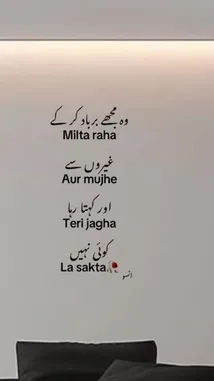 وہ مجھے برباد کر کے
Milta raha
غیروں سے
Aur mujhe
اور کہتا رہا
Teri jagha
کوئی نہیں
La sakta🥀